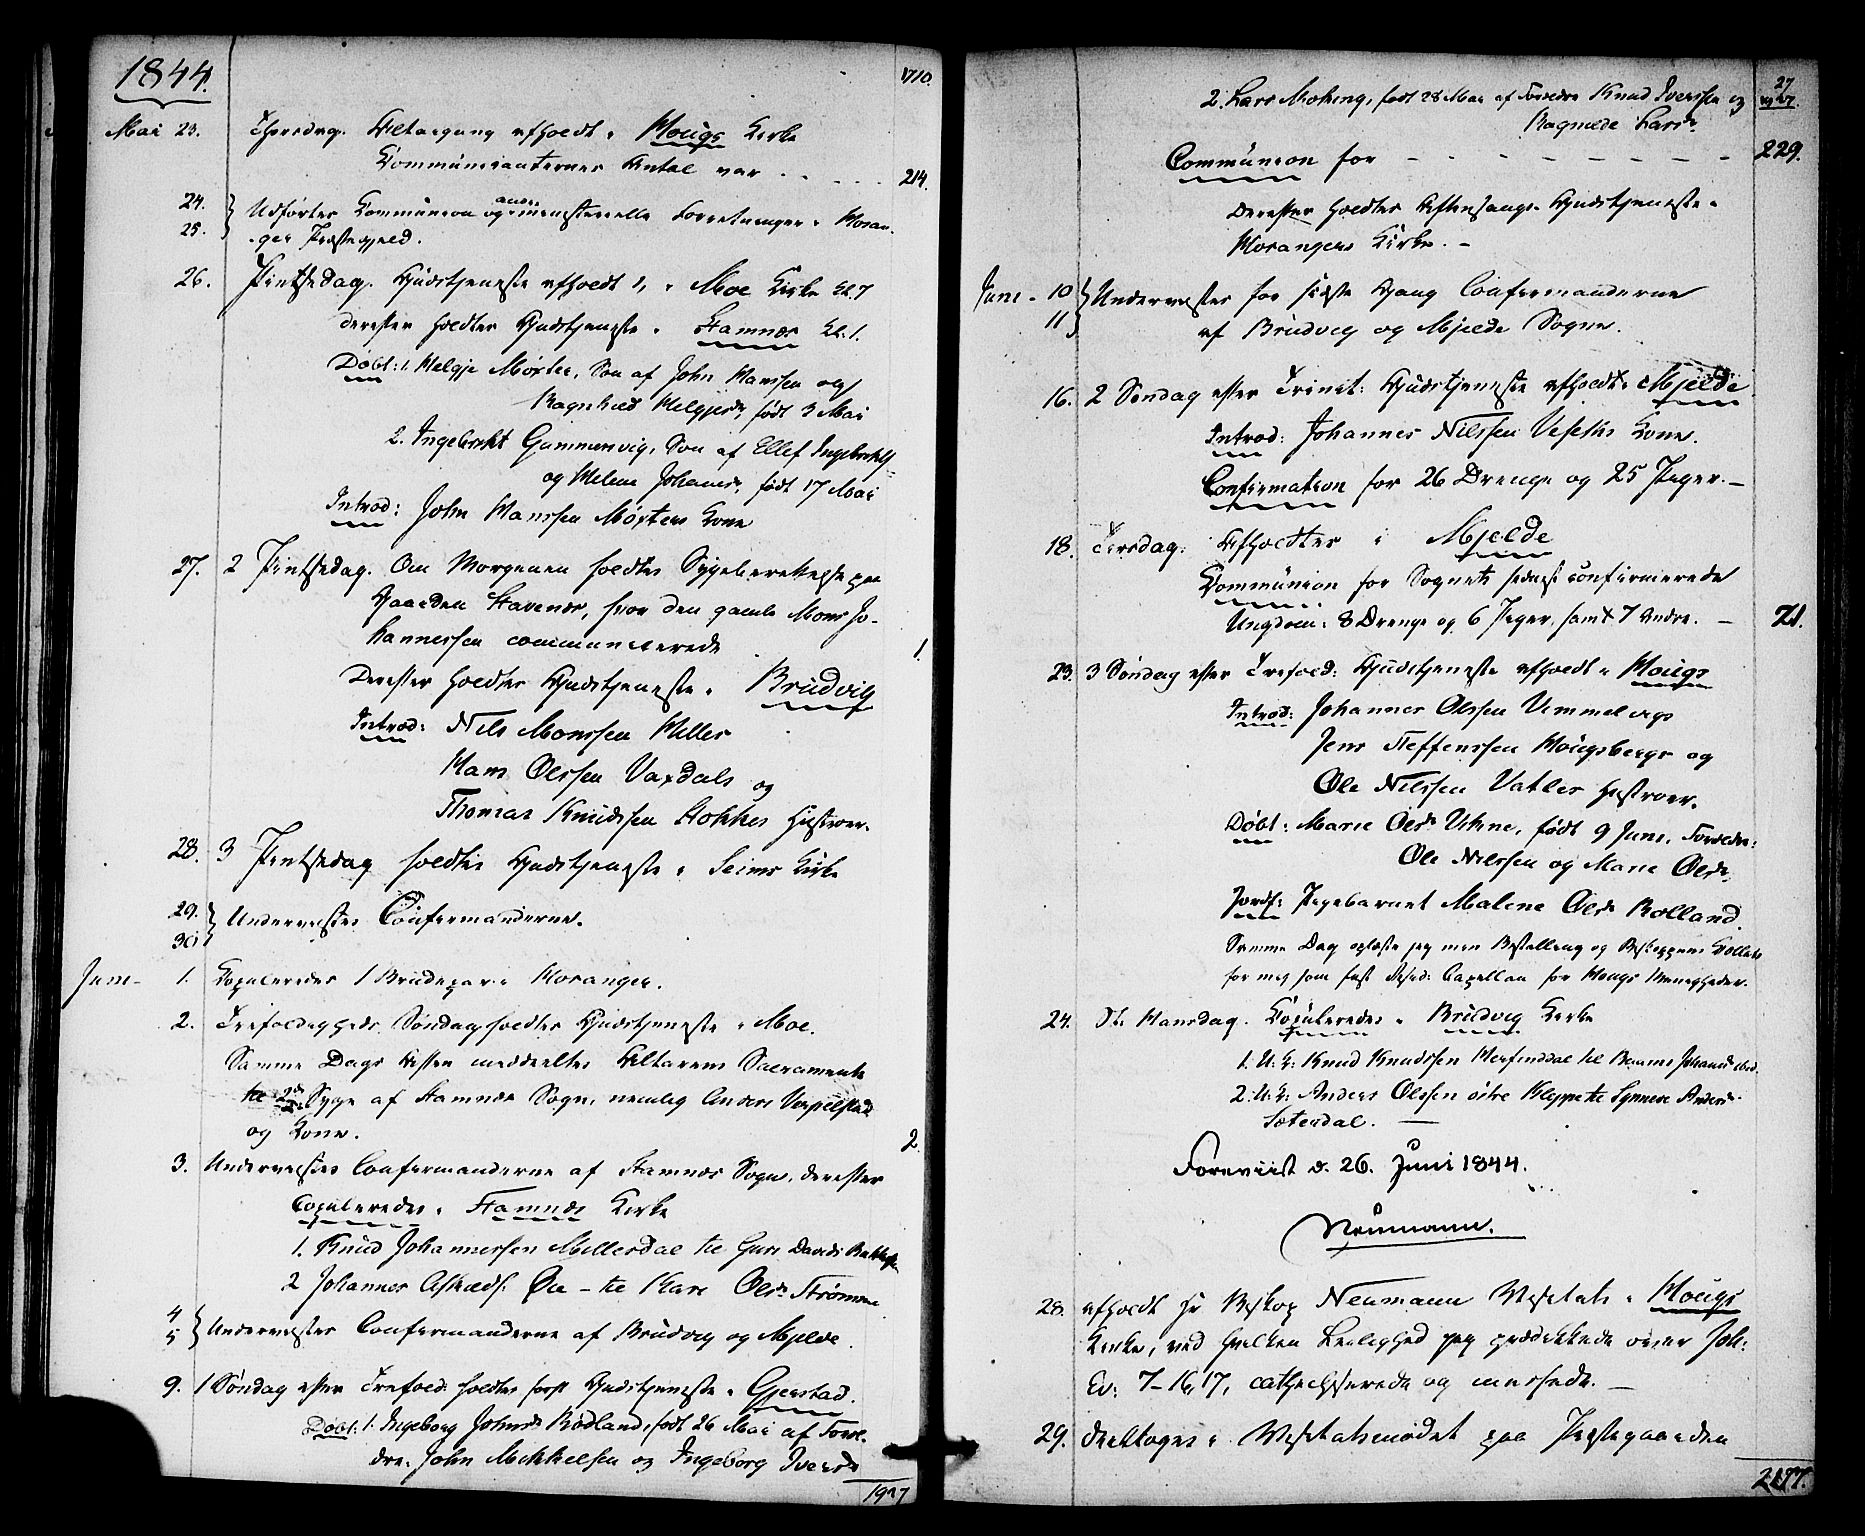 1844.
1710.
Mai 23. Thorsdag. Altargang afholdt i Hougs Kirke
Communicanternes Antal var . . . . . 214.
24. Udførtes Communion og andre ministerielle Forretninger i Hosan-
25. ger Præstegjeld.
26. Pintsedag. Gudstjeneste afholdt i Moe Kirke Kl. 7
derefter holdtes Gudstjeneste i Stamnæs Kl. 1.
Døbt: 1. Helgje Mørter, Søn af John Hanssen og
Ragnhild Helgjesdr, født 3 Mai
2. Ingebricht Gammersvig, Søn af Ellef Ingebrichts.
og Helene Johansdr, født 17 Mai
Introd: John Hanssen Mørters Kone
27. 2 Pintsedag. Om Morgenen holdtes Sygeberettelse paa
Gaarden Stavenæs, hvor den gamle Mons Jo-
hannessen communicerede 1.
Derefter holdtes Gudstjeneste i Brudvig
Introd: Nils Monssen Helles
Hans Olssen Vaxdals og
Thomas Knudssen Stokkes Hustroer.
28. 3 Pintsedag holdtes Gudstjeneste i Seims Kirke
29. Underviistes Confirmanderne.
30
Juni - 1. Copuleredes 1 Brudepar i Hosanger.
2. Trefoldigheds Søndag holdtes Gudstjeneste i Moe.
Samme Dags Aften meddeeltes Altarens Sacramente
til 2de Syge af Stamnæs Sogn, nemlig Anders
og Kone. 2
3. Underviistes Confirmanderne af Stamnæs Sogn, derefter
Copuleredes i Stamnæs Kirke
1. Knud Johannessen Millesdal til Guri Davids
2 Johannes Øie - til Kari Olsdr Strømme
4
5 Underviistes Confirmanderne af Brudvig og Mjelde.
9. 1 Søndag efter Trefold: holdtes først Gudstjeneste i Gjerstad.
Døbt: 1. Ingeborg Johnsdr Rødland, født 26 Mai af Foræl-
dre: John Mikkelsen og Ingeborg Iversdr
1927
27
1927.
2. Lars Mohing, født 28 Mai af Forældre Knud Iverssen og
Ragnilde Larsdr.
Communion for - - - - - - - - 229.
Derefter holdtes Aftensangs-Gudstjeneste i
Hosangers Kirke. -
Juni - 10 Underviistes for sidste Gang Confirmanderne
11 af Brudvig og Mjelde Sogne.
16. 2 Søndag efter Trinit: Gudstjeneste afholdt i Mjelde
Introd: Johannes Nilssen Veseths Kone.
Confirmation for 26 Drenge og 25 Piger. -
18. Tirsdag. Afholdtes i Mjelde
Communion for Sognets sidst confirmerede
Ungdom: 8 Drenge og 6 Piger, samt 7 Andre. - 21.
23. 3 Søndag efter Trefold: Gudstjeneste afholdt i Hougs
Introd: Johannes Olssen Vimmelvigs
Jens Steffenssen Hougsbergs og
Ole Nilssen Vatles Hustroer.
Døbt: Marie Olsdr Uthne, født 9 Juni, Forældre:
Ole Nilssen og Marie Olsdr.
Jordf: Pigebarnet Malene Olsdr Rolland.
Samme Dag oplæste jeg min Bestalling og Biskoppens Collats
for mig som fast resid: Capellan for Hougs Menigheder.
24. St. Hansdag. Copuleredes i Brudvig Kirke
1. U. K: Knud Knudssen Herfinddal til
2. U. K: Anders Olssen østre Kleppe til Synneve Andersdr
Sætendal. -
Foreviist d. 26. Juni 1844.
Neumann.
28. afholdt Hr Biskop Neumann Visitats i Hougs
Kirke, ved hvilken Leilighed jeg prædikede over Joh:
Ev: 7-16,17, cathechiserede og messede. -
29. deeltoges i Visitatsmødet paa Præstegaarden
2177.